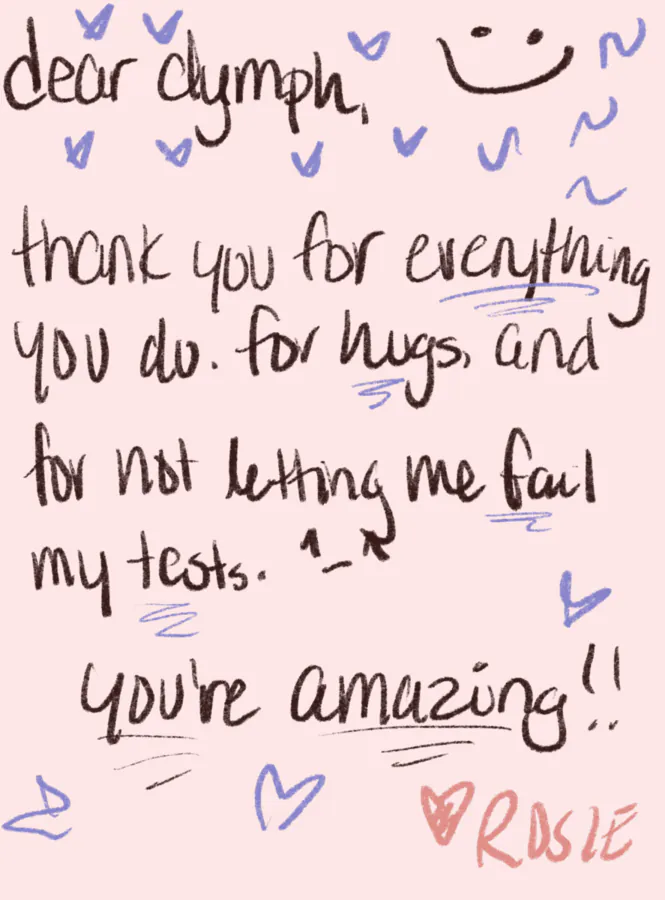 dear dymph,
thank you for everything
you do. for hugs, and
for not letting me fail
my tests. ^_^
you're amazing!!
ROSIE